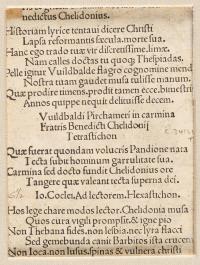 nedictus Chelidonius.
Historiam lyrice tentaui dicere Christi
Lapsa reformantis sæcula, morte sua.
Hanc ego trado tuæ vir disertissime, limæ.
Nam calles doctas tu quoq; Thespiadas.
Pelle igitur Vuildbalde flagro cognomine mendas
Nostra tuum gaudet musa tulisse manum.
Quæ prodire timens, prodit tamen ecce, bimestri
Annos quippe nequit delituisse decem.
Vuildbaldi Pirchameri in carmina
Fratris Benedicti Chelidonij
Tetrastichon
Quæ fuerat quondam volucris Pandione nata
Tecta subit hominum garrulitate sua.
Carmina sed docto fundit Chelidonius ore
Tangere quæ valeant tecta superna dei.
Io. Coclei, Ad lectorem, Hexastichon.
Hos lege chare modos lector, Chelidonia musa
Quos cura vigili prompsit, & igne pio
Non Thebana fides, non lesbia, nec lyra flacci
Sed gemebunda canit Barbitos ista crucem
Non loca, non lusus, spinas & vulnera christi